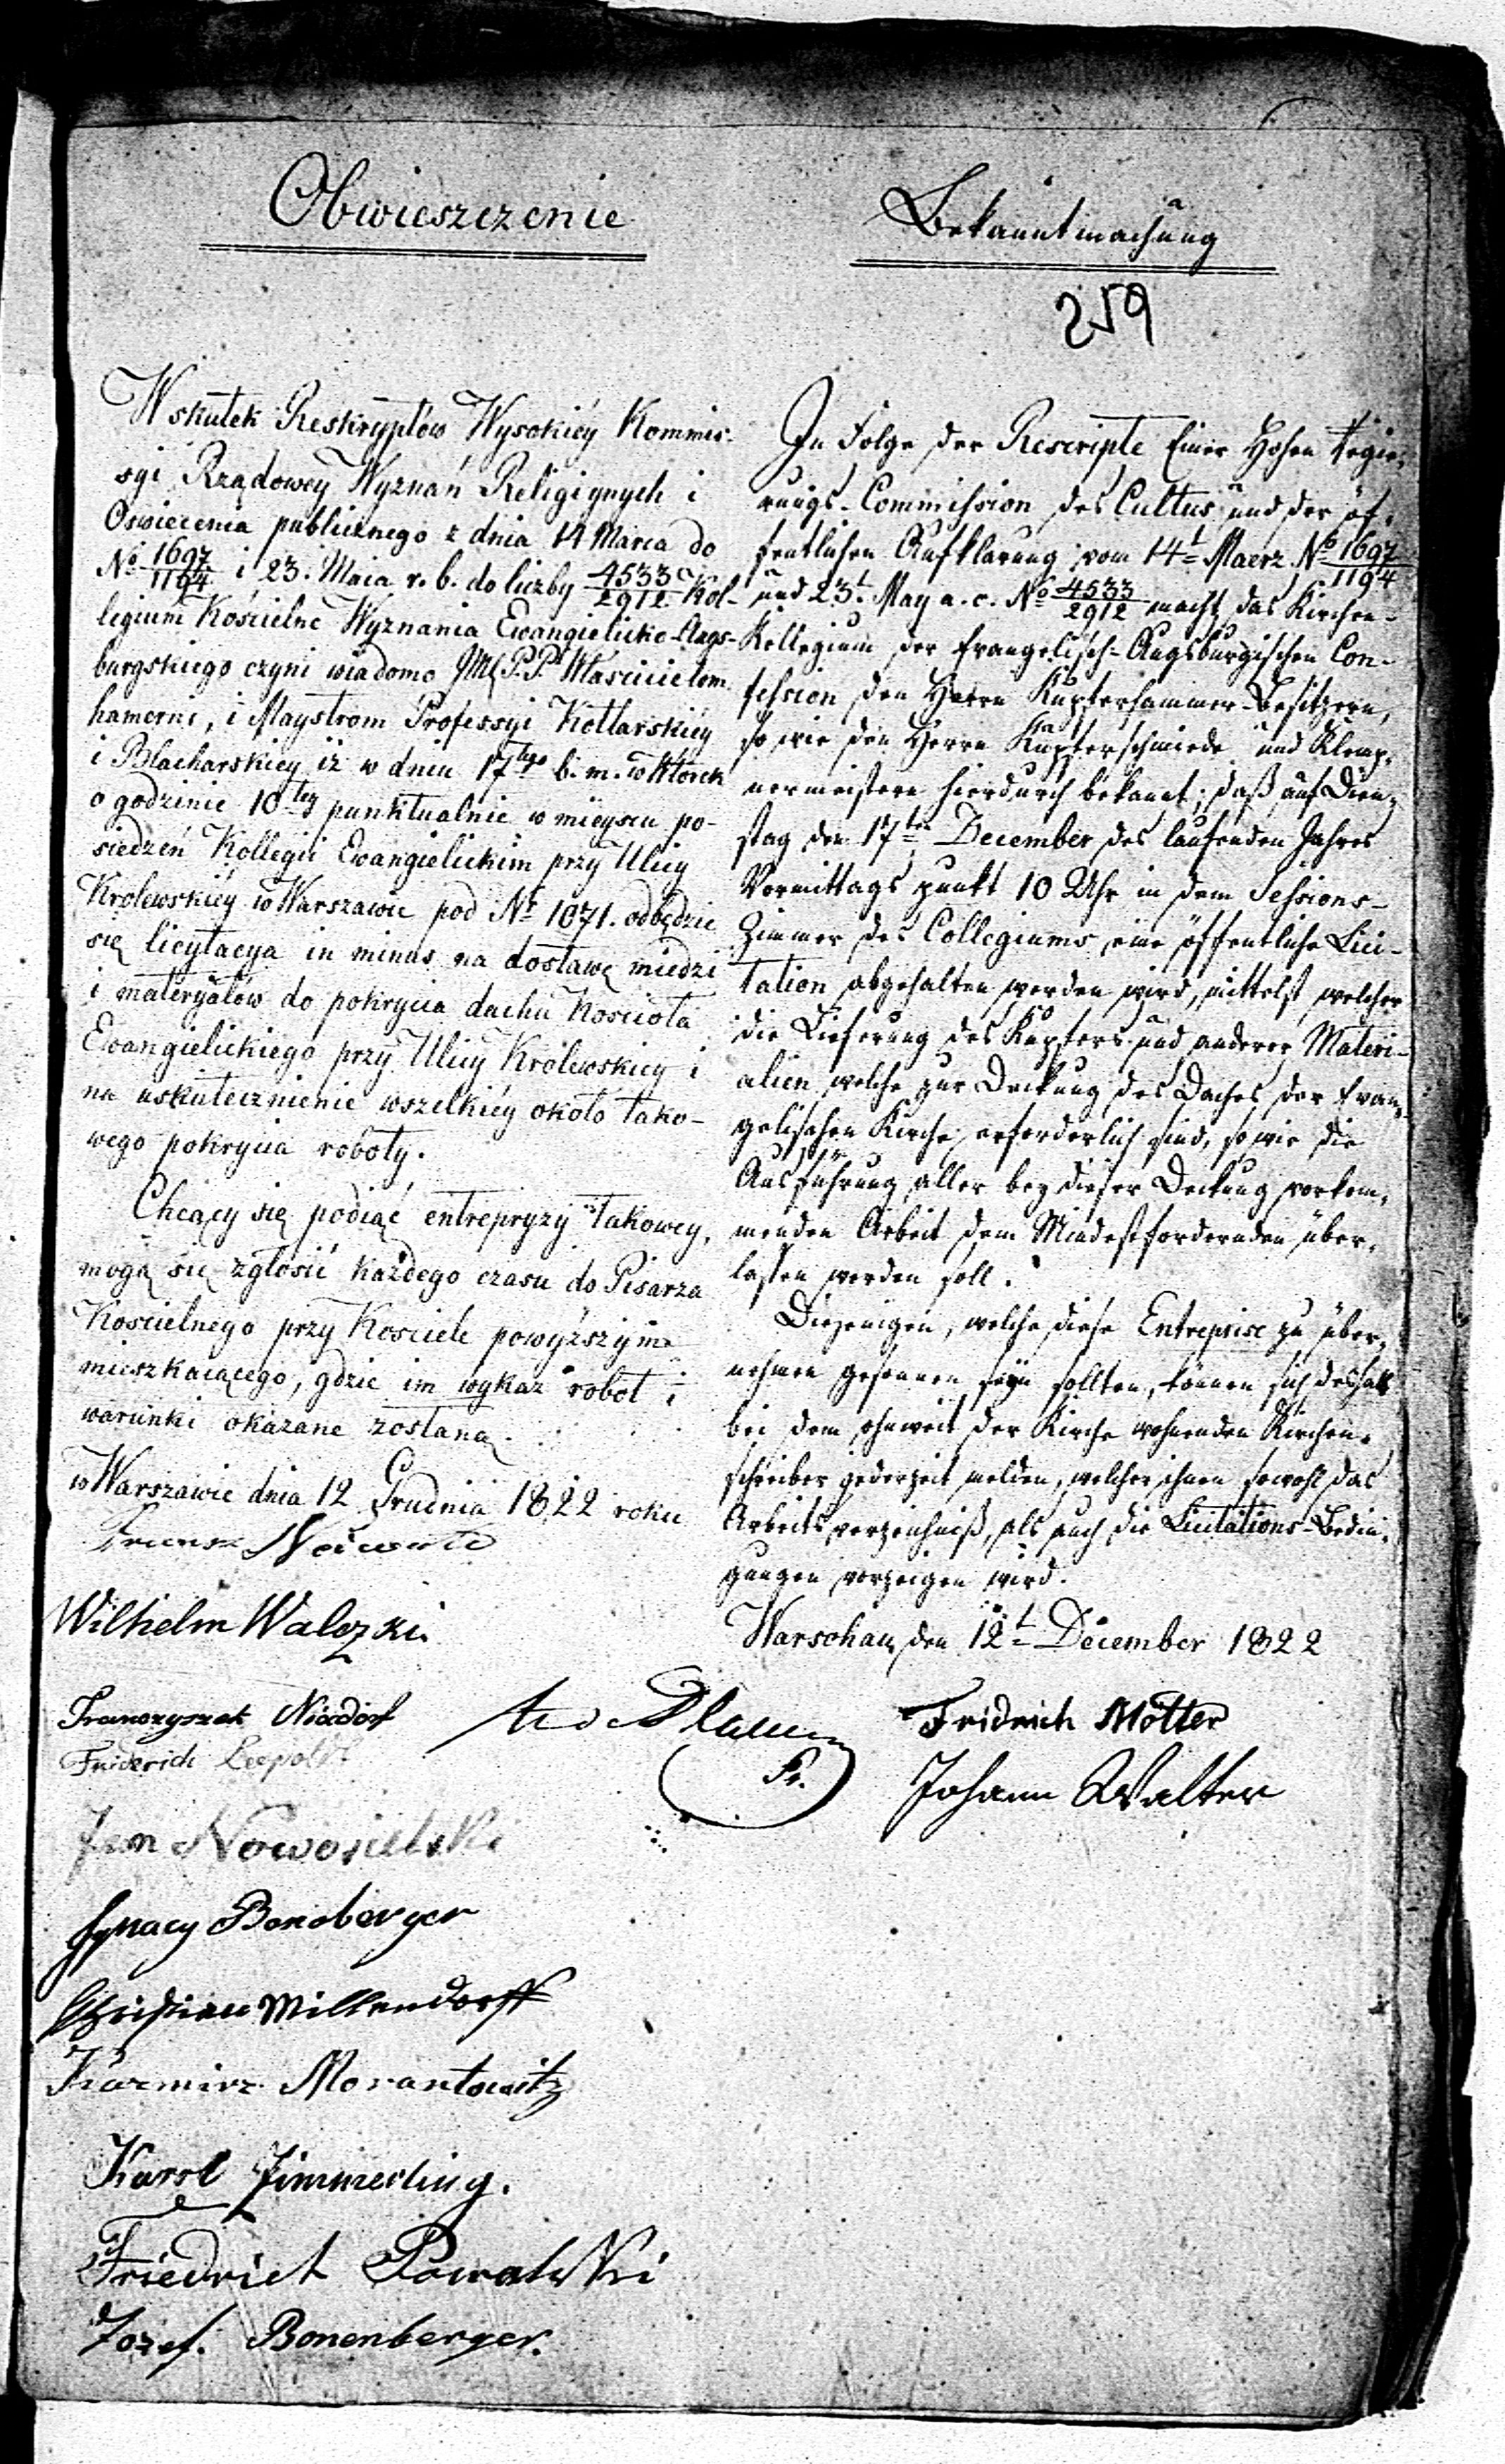 Obwieszczenie
Wskutek Reskryptów Wysokiéy Kommis-
syi Rządowéy Wyznań Religiynych i
Oswiecenia publicznego z dnia 14 Marca do
No 1697/1194 i 23. Maia r. b. do liczby 4533/2912 Kol-
legium Kościelne Wyznania Ewangielicko-Augs-
burgskiego czyni wiadomo JM P.P. Włascicielom
hamerni, i Maystrom Professyi Kotlarskiéy
i Blacharskiey iż w dniu 17tego b. m. w Wtorek
o godzinie 10téy punktualnie w mieyscu po-
siedzeń Kollegii Ewangielickim przy Ulicy
Królewskiéy w Warszawie pod No 1071. odbędzie
się licytacya in minus na dostawę miedzi
i materyałów do pokrycia dachu Kościoła
Ewangielickiego przy Ulicy Królewskiey i
na uskutecznienie wszelkiéy około tako-
wego pokrycia roboty.
Chcący się podiąć entrepryzy takowey,
mogą się zgłosić każdego czasu do Pisarza
Kościelnego przy Kościele powyższym
mieszkaiącego, gdzie im wykaz robot i
warunki okazane zostaną.
w Warszawie dnia 12 Grudnia 1822 roku
Wilhelm Walezki
Franczyszek Nixdorf
Friderich Leepoldt
Jan Nowosielski
Ignacy Bonoberger
Christian Millendorff
Kazmirz Morantowitz
Karol Zimmerling.
Friedrich Powalski
Jozef. Bonenberger.
Bekanntmachung
259
In Folge der Rescripte Einer Hohen Regie-
rungs-Commission des Cultus und der öf-
fentlichen Aufklärung vom 14t Maerz No 1697/1194
und 23t May a. c. No 4533/2912 macht das Kirchen-
Kollegium der Evangelisch-Augsburgischen Con-
fession den Herrn Kupferhammer-Besitzern,
so wie den Herrn Kupferschmiede und Klemp-
nermeistern hierdurch bekannt; daß auf Dien-
stag den 17ten December des laufenden Jahres
Vormittags punkt 10 Uhr in dem Sessions-
Zimmer des Collegiums eine öffentliche Lici-
tation abgehalten werden wird, mittelst welcher
die Lieferung des Kupfers und anderer Materi-
alien welche zur Deckung des Daches der Evan-
gelischen Kirche erforderlich sind, so wie die
Ausführung aller bey dieser Deckung vorkom-
menden Arbeit dem Mindestfordernden über-
lassen werden soll.
Diejenigen, welche diese Entreprise zu über-
nehmen gesonnen seyn sollten, können sich deshalb
bei dem ohnweit der Kirche wohnenden Kirchen-
schreiber jederzeit melden, welcher ihnen sowohl das
Arbeitsverzeichniß, als auch die Licitations-Bedin-
gungen vorzeigen wird.
Warschau den 12t December 1822
Fridrich Motter
Johann Walter